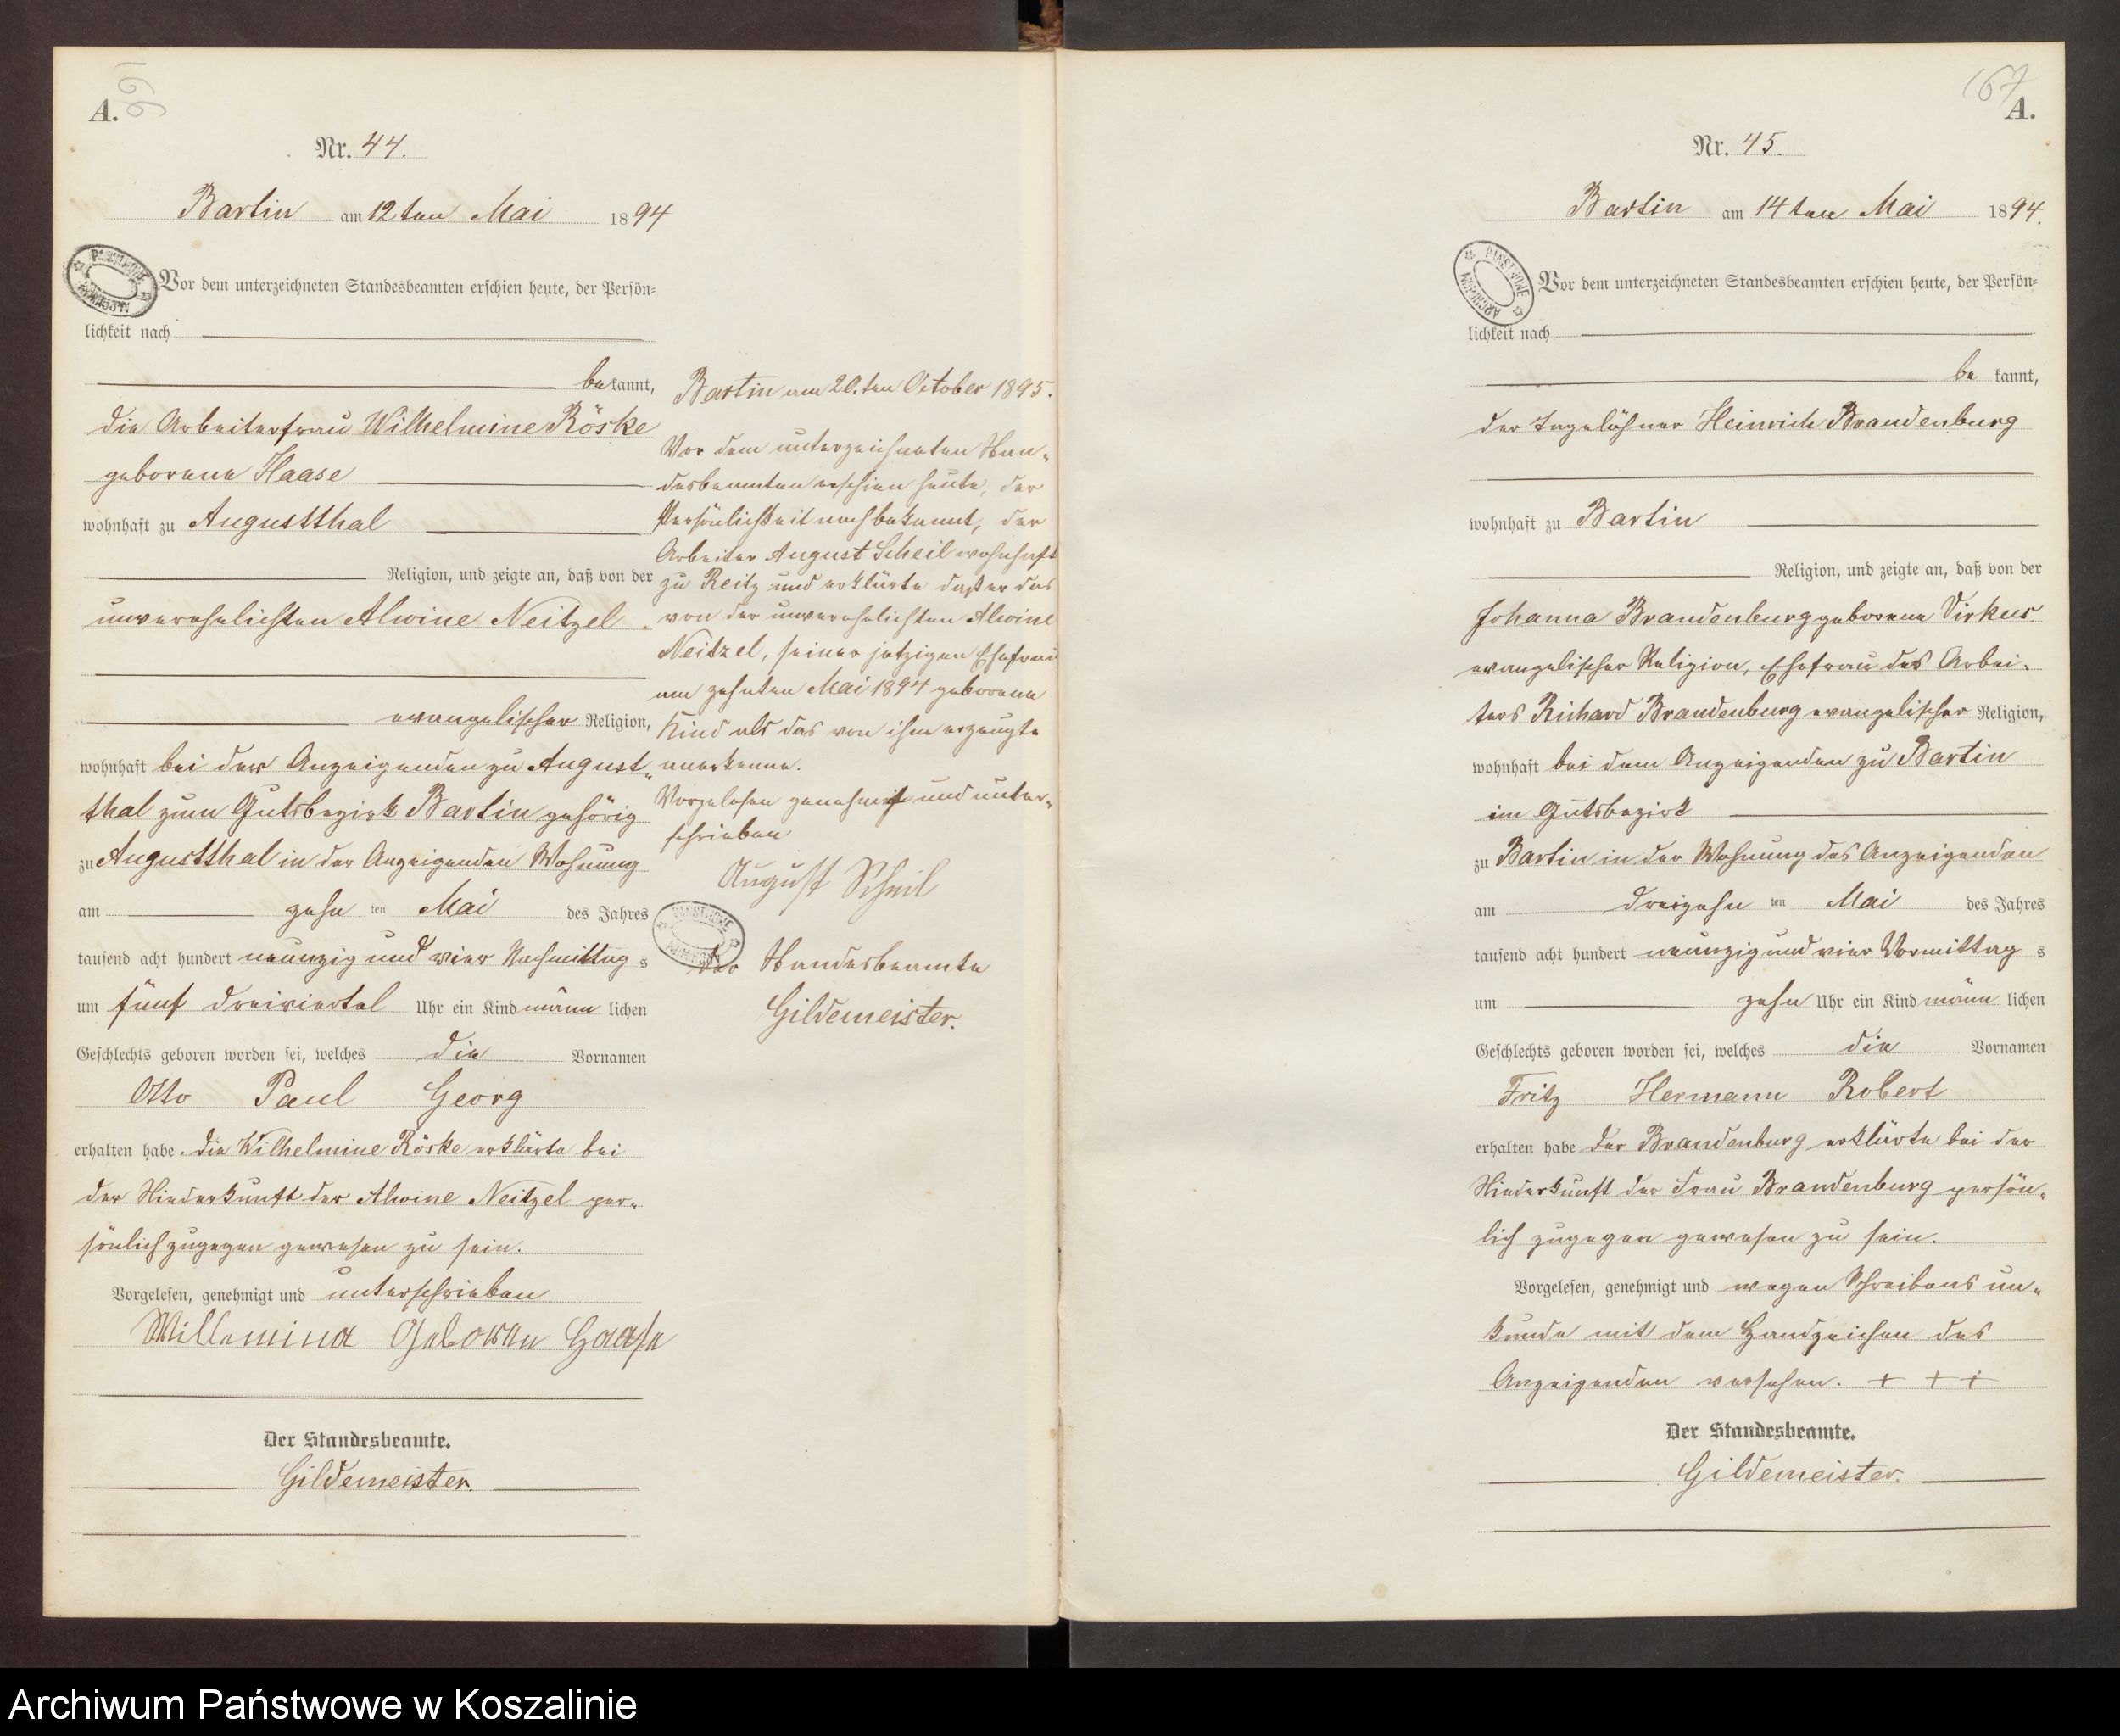 A.
166
Nr. 44.
Bartin am 12ten Mai 1894
Vor dem unterzeichneten Standesbeamten erschien heute, der Persön=
lichkeit nach
bekannt,
die Arbeiterfrau Wilhelmine Röske
geborene Haase
wohnhaft zu Augustthal
Religion, und zeigte an, daß von der
unverehelichten Alwine Neitzel
evangelischer Religion,
wohnhaft bei der Anzeigenden zu August„
thal zum Gutsbezirk Bartin gehörig
zu Augustthal in der Anzeigenden Wohnung
am zehn ten Mai des Jahres
tausend acht hundert neunzig und vier Nachmittag s
um fünf dreiviertel Uhr ein Kind männ lichen
Geschlechts geboren worden sei, welches die Vornamen
Otto Paul Georg
erhalten habe. Die Wilhelmine Röske erklärte bei
der Niederkunft der Alwine Neitzel per„
sönlich zugegen gewesen zu sein.
Vorgelesen, genehmigt und unterschrieben
Willemina Geboren Haase
Der Standesbeamte.
Gildemeister.
Bartin am 20.ten October 1895.
Vor dem unterzeichneten Stan„
desbeamten erschien heute, der
Persönlichkeit nach bekannt, der
Arbeiter August Scheil wohnhaft
zu Reitz und erklärte daß er das
von der unverehelichten Alwine
Neitzel, seiner jetzigen Ehefrau
am zehnten Mai 1894 geborene
Kind als das von ihm erzeugte
anerkenne.
Vorgelesen genehmigt und unter„
schrieben
August Scheil
Der Standesbeamte
Gildemeister.
167
A.
Nr. 45.
Bartin am 14ten Mai 1894.
Vor dem unterzeichneten Standesbeamten erschien heute, der Persön=
lichkeit nach
be kannt,
der Tagelöhner Heinrich Brandenburg
wohnhaft zu Bartin
Religion, und zeigte an, daß von der
Johanna Brandenburg geborene Virkus.
evangelischer Religion, Ehefrau des Arbei„
ters Richard Brandenburg evangelischer Religion,
wohnhaft bei dem Anzeigenden zu Bartin
im Gutsbezirk
zu Bartin in der Wohnung des Anzeigenden
am dreizehn ten Mai des Jahres
tausend acht hundert neunzig und vier Vormittag s
um zehn Uhr ein Kind männ lichen
Geschlechts geboren worden sei, welches die Vornamen
Fritz Hermann Robert
erhalten habe Der Brandenburg erklärte bei der
Niederkunft der Frau Brandenburg persön„
lich zugegen gewesen zu sein.
Vorgelesen, genehmigt und wegen Schreibens un„
kunde mit dem Handzeichen des
Anzeigenden versehen. + + +
Der Standesbeamte.
Gildemeister.
Archiwum Państwowe w Koszalinie